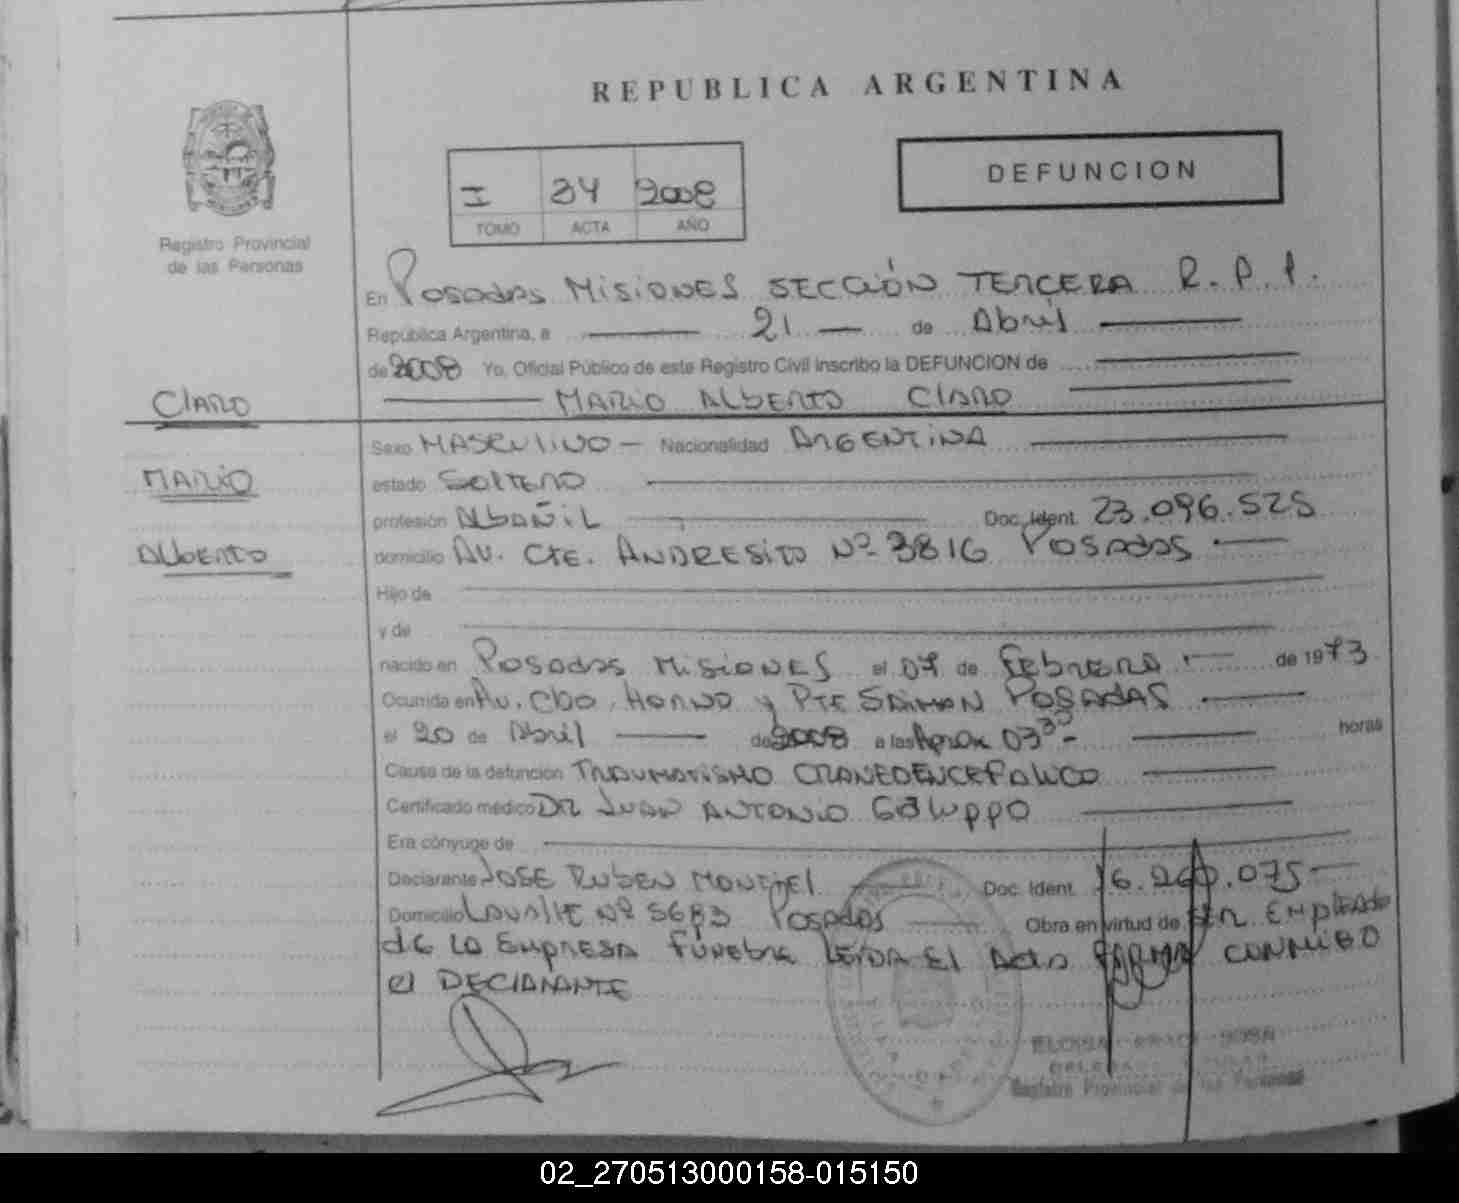 REPUBLICA ARGENTINA
DEFUNCION
I 34 2008
TOMO ACTA AÑO
Registro Provincial
de las Personas
En Posadas Misiones SECCIÓN TERCERA R.P.P.
República Argentina, a 21 de Abril
de 2008 Yo, Oficial Público de este Registro Civil inscribo la DEFUNCION de
MARIO ALBERTO CLARO
CLARO
MARIO
ALBERTO
Sexo MASCULINO - Nacionalidad ARGENTINA
estado SOLTERO
profesión ALBAÑIL Doc. Ident. 23.096.525
domicilio AV. CTE. ANDRESITO Nº 3816 POSADAS
Hijo de
y de
nacido en POSADAS MISIONES el 07 de Febrero de 1973
Ocurrida en AV. CBO. HORNO y PTE SAIMAN POSADAS
el 20 de Abril de 2008 a las Aprox 03³⁰ - horas
Causa de la defunción TRAUMATISMO CRANEOENCEFALICO
Certificado médico DR JUAN ANTONIO GALUPPO
Era cónyuge de
Declarante JOSE RUBEN Doc. Ident. 16.260.075
Domicilio LAVALLE Nº 5683 POSADAS Obra en virtud de SER EMPLEADO
de LA EMPRESA FÚNEBRE LEIDA EL ACTA FIRMA CONMIGO
el DECLARANTE
Registro Provincial de las Personas
02_270513000158-015150